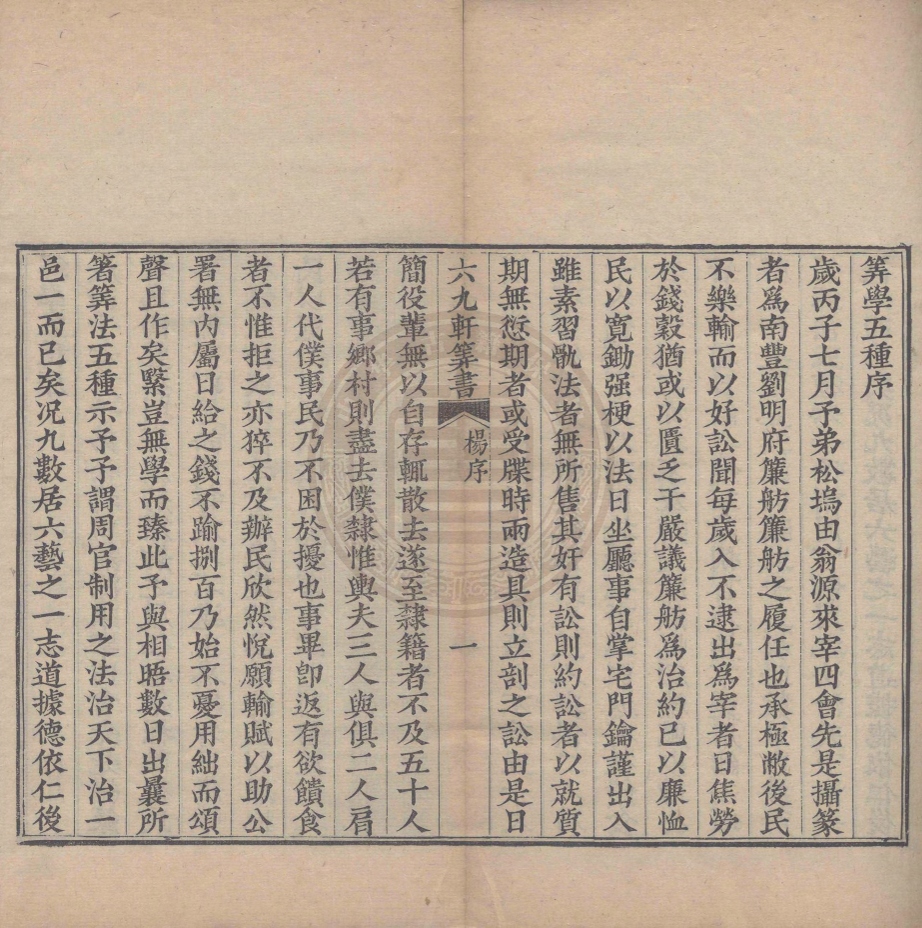 筭學五種序
歲丙子七月予弟松塢由翁源來宰四會先是攝篆
者爲南豐劉明府簾舫簾舫之履任也承極敝後民
不樂輸而以好訟聞每歲入不逮出爲宰者日焦勞
於錢穀猶或以匱乏干嚴議簾舫爲治約已以廉恤
民以寬鋤强梗以法日坐廳事自掌宅門鑰謹出入
雖素習骩法者無所售其奸有訟則約訟者以就質
期無愆期者或受牒時兩造具則立剖之訟由是日
六九軒筭書 楊序 一
簡役輩無以自存輒散去遂至隸籍者不及五十人
若有事鄉村則盡去僕隸惟輿夫三人與俱二人肩
一人代僕事民乃不困於擾也事畢卽返有欲饋食
者不惟拒之亦猝不及辦民欣然悅願輸賦以助公
署無內屬日給之錢不踰捌百乃始不憂用絀而頌
聲且作矣緊豈無學而臻此予與相晤數日出曩所
箸筭法五種示予予謂周官制用之法治天下治一
邑一而已矣况九數居六藝之一志道據德依仁後